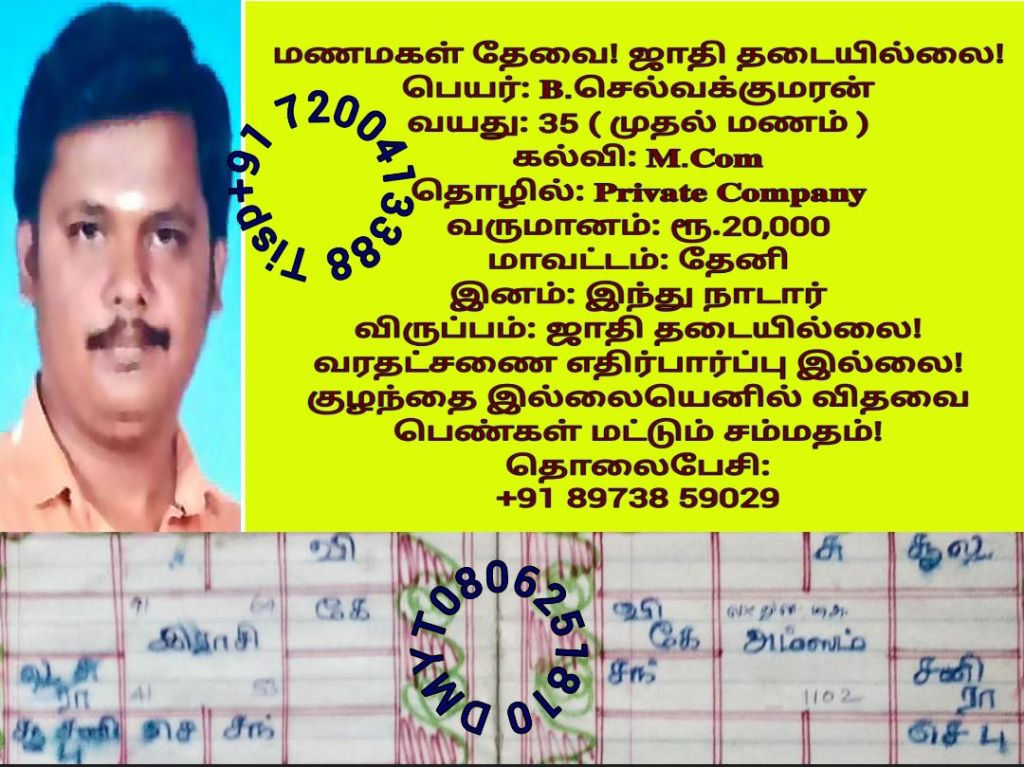 மணமகள் தேவை! ஜாதி தடையில்லை!
பெயர்: B.செல்வக்குமரன்
வயது: 35 ( முதல் மணம் )
கல்வி: M.Com
தொழில்: Private Company
வருமானம்: ரூ.20,000
மாவட்டம்: தேனி
இனம்: இந்து நாடார்
விருப்பம்: ஜாதி தடையில்லை!
வரதட்சணை எதிர்பார்ப்பு இல்லை!
குழந்தை இல்லையெனில் விதவை
பெண்கள் மட்டும் சம்மதம்!
தொலைபேசி:
+91 89738 59029
Tisp+91 7200413388
வி
கே
இராசி
ரா
சூ சனி
பு
செ
சந்
DMYT0806251810
சு
வி
கே
அம்ஸம்
சந்
1102
சனி
ரா
செ பு